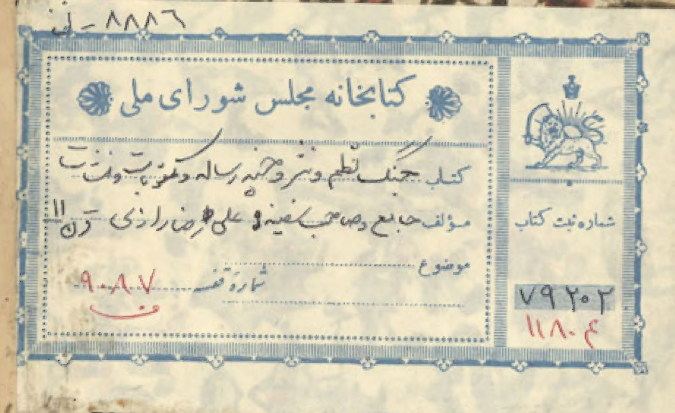 ۸۸۸۶ - ف
کتابخانه مجلس شورای ملی
کتاب جنگ نظم و نثر و چند رساله و مکتوبات و منشآت
مؤلف جامع و صاحب سفینه: علی رضا رازی قرن ۱۱
موضوع
شماره قفسه ۹۰۸۰۷
ف
شماره ثبت کتاب
۷۹۲۰۲
۱۱۸۰۴